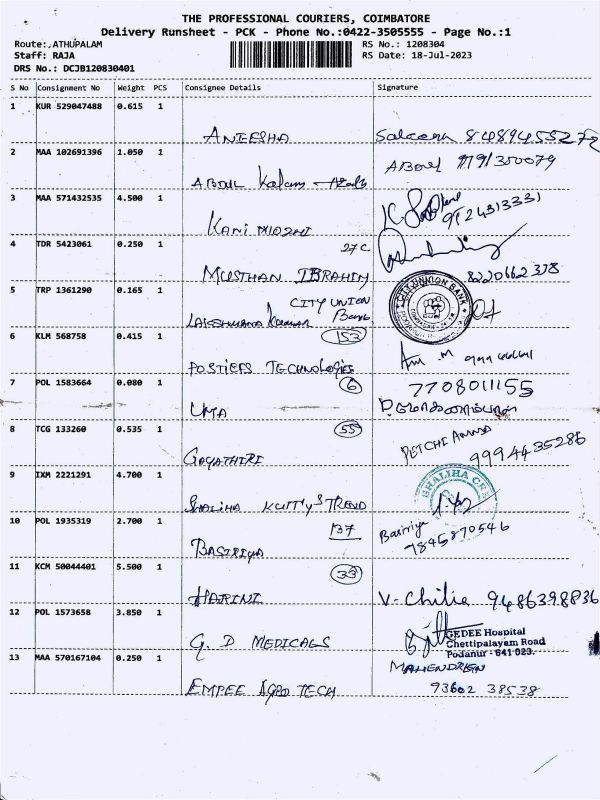 THE PROFESSIONAL COURIERS, COIMBATORE
Delivery Runsheet - PCK - Phone No.:0422-3505555 - Page No.:1
Route:,ATHUPALAM
RS No.: 1208304
Staff: RAJA
RS Date: 18-Jul-2023
DRS No.: DCJB120830401
S No Consignment No Weight PCS Consignee Details Signature
1 KUR 529047488 0.615 1
ANEESHA
2 MAA 102691396 1.050 1
ABDUL Kalam
3 MAA 571432535 4.500 1
9124313331
4 TDR 5423061 0.250 1
27C
MUSTHAN IBRAHIM
8220662378
5 TRP 1361290 0.165 1
CITY UNION
Bank
CITY UNION BANK
LAKSHMANA Kumar
6 KLM 568758 0.415 1
153
POSTIEFS TECHNOLOGIES
7 POL 1583664 0.080 1
6
7708011155
UMA
8 TCG 133260 0.535 1
55
PETCHI AMMA
9994435286
GAYATHIRI
9 IXM 2221291 4.700 1
SHALIHA
SHALIHA KUTTY'S TREND
10 POL 1935319 2.700 1
137
Basiriya
7845870546
BASIRIYA
11 KCM 50044401 5.500 1
33
HARINI
V-Chilia 9486398836
12 POL 1573658 3.850 1
GEDEE Hospital
Chettipalayam Road
Podanur - 641 023.
G. D MEDICALS
13 MAA 570167104 0.250 1
MAHENDREN
93602 38538
EMPEE AGRO TECH